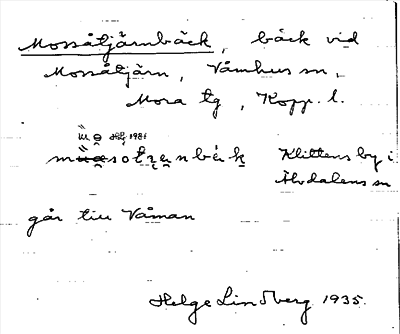 Mossåtjärnbäck, bäck vid
Mossåtjärn, Våmhus sn,
Mora tg, Kopp. l.
HLj 1981
Klittens by i
Älvdalens sn
går till Våman
Helge Lindberg 1935.